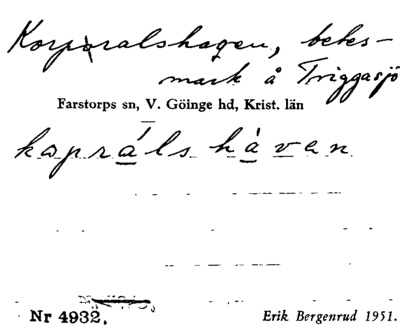 Korporalshagen, betes-
mark å Triggasjö
Farstorps sn, V. Göinge hd, Krist. län
kaprálshávan
Nr 4932.
Erik Bergenrud 1951.